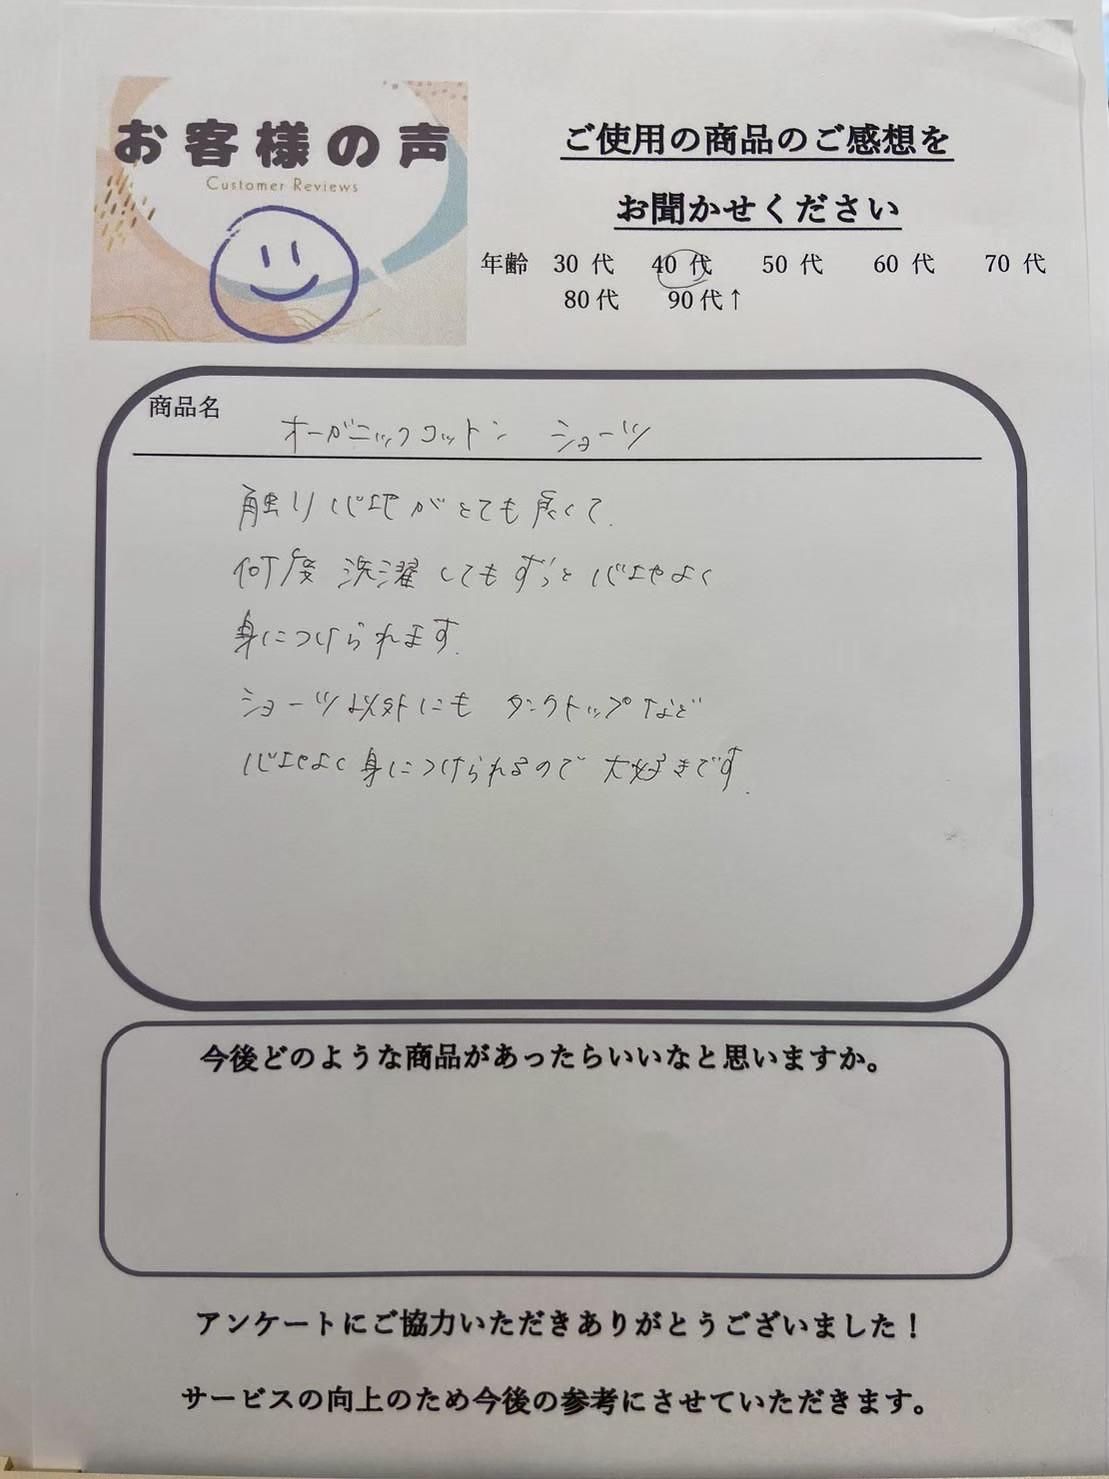 お客様の声
Customer Reviews
ご使用の商品のご感想を
お聞かせください
年齢 30 代 40 代 50 代 60 代 70 代
80代 90代↑
商品名
オーガニックコットン ショーツ
触り心地がとても良くて、
何度洗濯してもずっと心地よく
身につけられます。
ショーツ以外にも タンクトップなど
心地よく身につけられるので大好きです。
今後どのような商品があったらいいなと思いますか。
アンケートにご協力いただきありがとうございました！
サービスの向上のため今後の参考にさせていただきます。